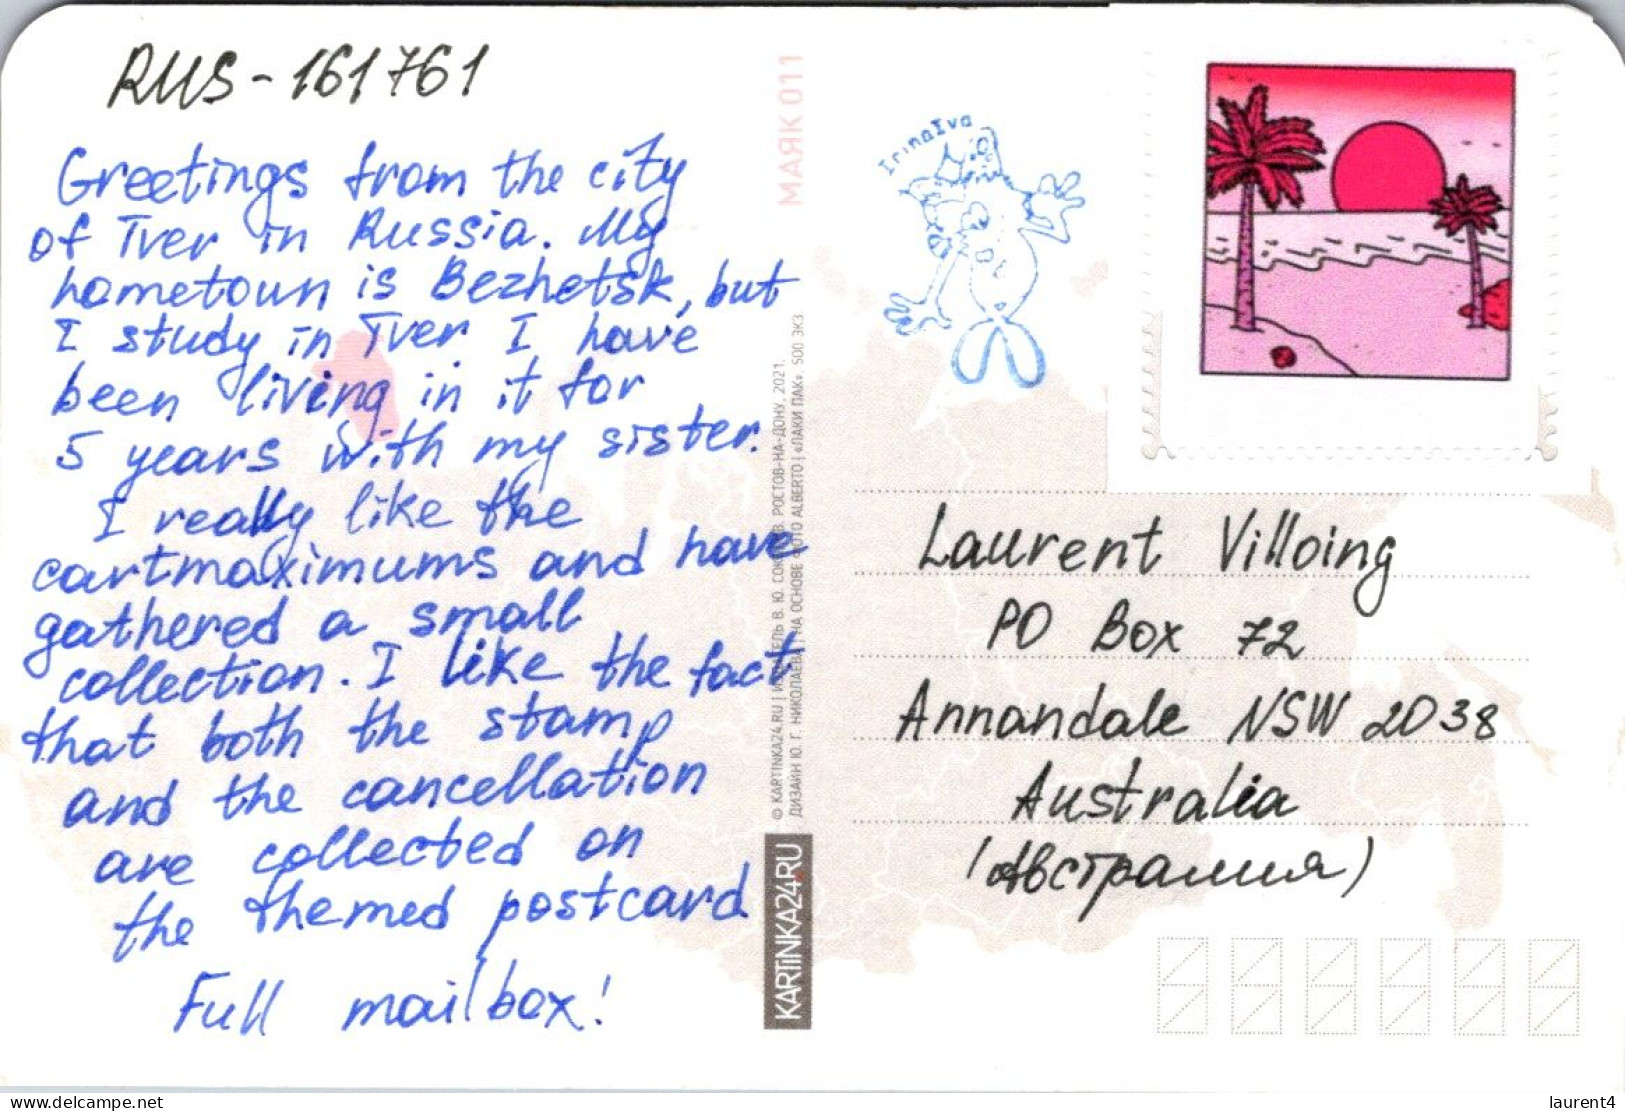 RUS-161761
Greetings from the city
of Tver in Russia. My
hometoun is Bezhetsk, but
I study in Tver I have
been living in it for
5 years with my sister.
I really like the
cartmaximums and have
gathered a small
collection. I like the fact
that both the stamp
and the cancellation
are collected on
the themed postcard
Full mailbox!
МАЯК 011
© KARTINKA24.RU | ИЗДАТЕЛЬ В. Ю. РОСТОВ-НА-ДОНУ, 2021.
ДИЗАЙН Ю. Г. НИКОЛАЕВА, НА ОСНОВЕ ФОТО ALBERTO | «ЛАКИ ПАК». 500 ЭКЗ
KARTiNKA24.RU
IrinaIva
Laurent Villoing
PO Box 72
Annandale NSW 2038
Australia
(Австралия)
delcampe.net
laurent4